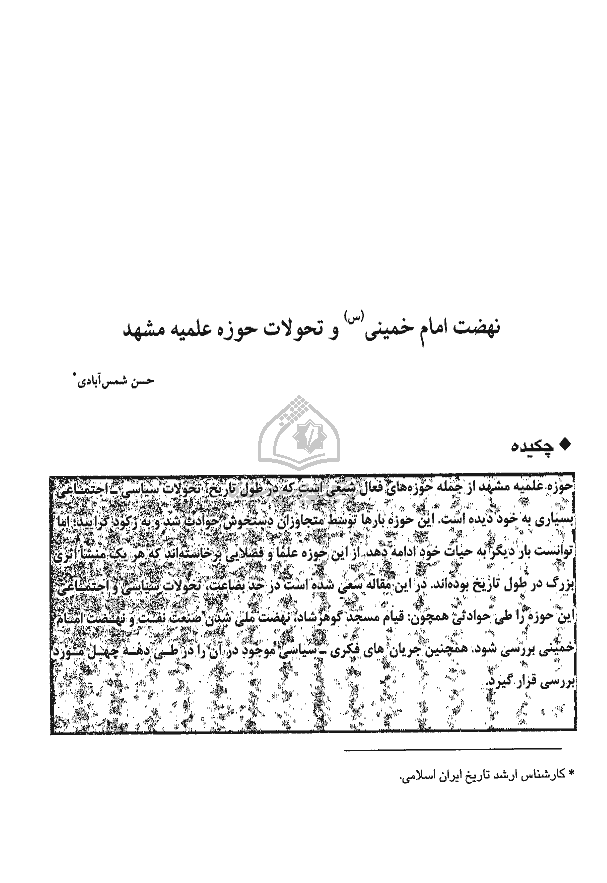 نهضت امام خمینی(س) و تحولات حوزه علمیه مشهد
حسن شمس‌آبادی*
◆ چکیده
حوزه علمیه مشهد از جمله حوزه‌های فعال شیعی است که در طول تاریخ، تحولات سیاسی ـ اجتماعی
بسیاری به خود دیده است. این حوزه بارها توسط متجاوزان دستخوش حوادث شد و به رکود گرایید؛ اما
توانست بار دیگر به حیات خود ادامه دهد. از این حوزه علما و فضلایی برخاسته‌اند که هر یک منشأ اثری
بزرگ در طول تاریخ بوده‌اند. در این مقاله سعی شده است در حد بضاعت، تحولات سیاسی و اجتماعی
این حوزه را طی حوادثی همچون: قیام مسجد گوهرشاد، نهضت ملی شدن صنعت نفت و نهضت امام
خمینی بررسی شود. همچنین جریان های فکری ـ سیاسی موجود در آن را در طی دهه چهل مورد
بررسی قرار گیرد.
* کارشناس ارشد تاریخ ایران اسلامی.